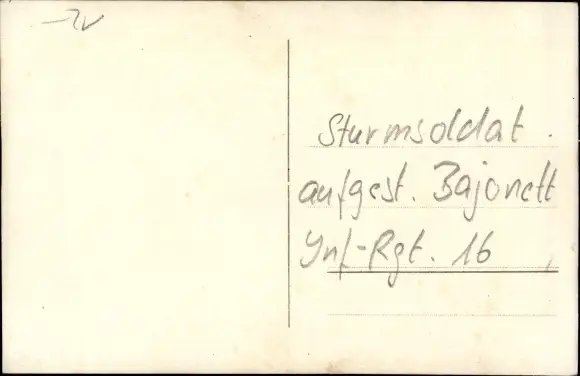 Sturmsoldat.
aufgest. Bajonett
Inf-Rgt. 16